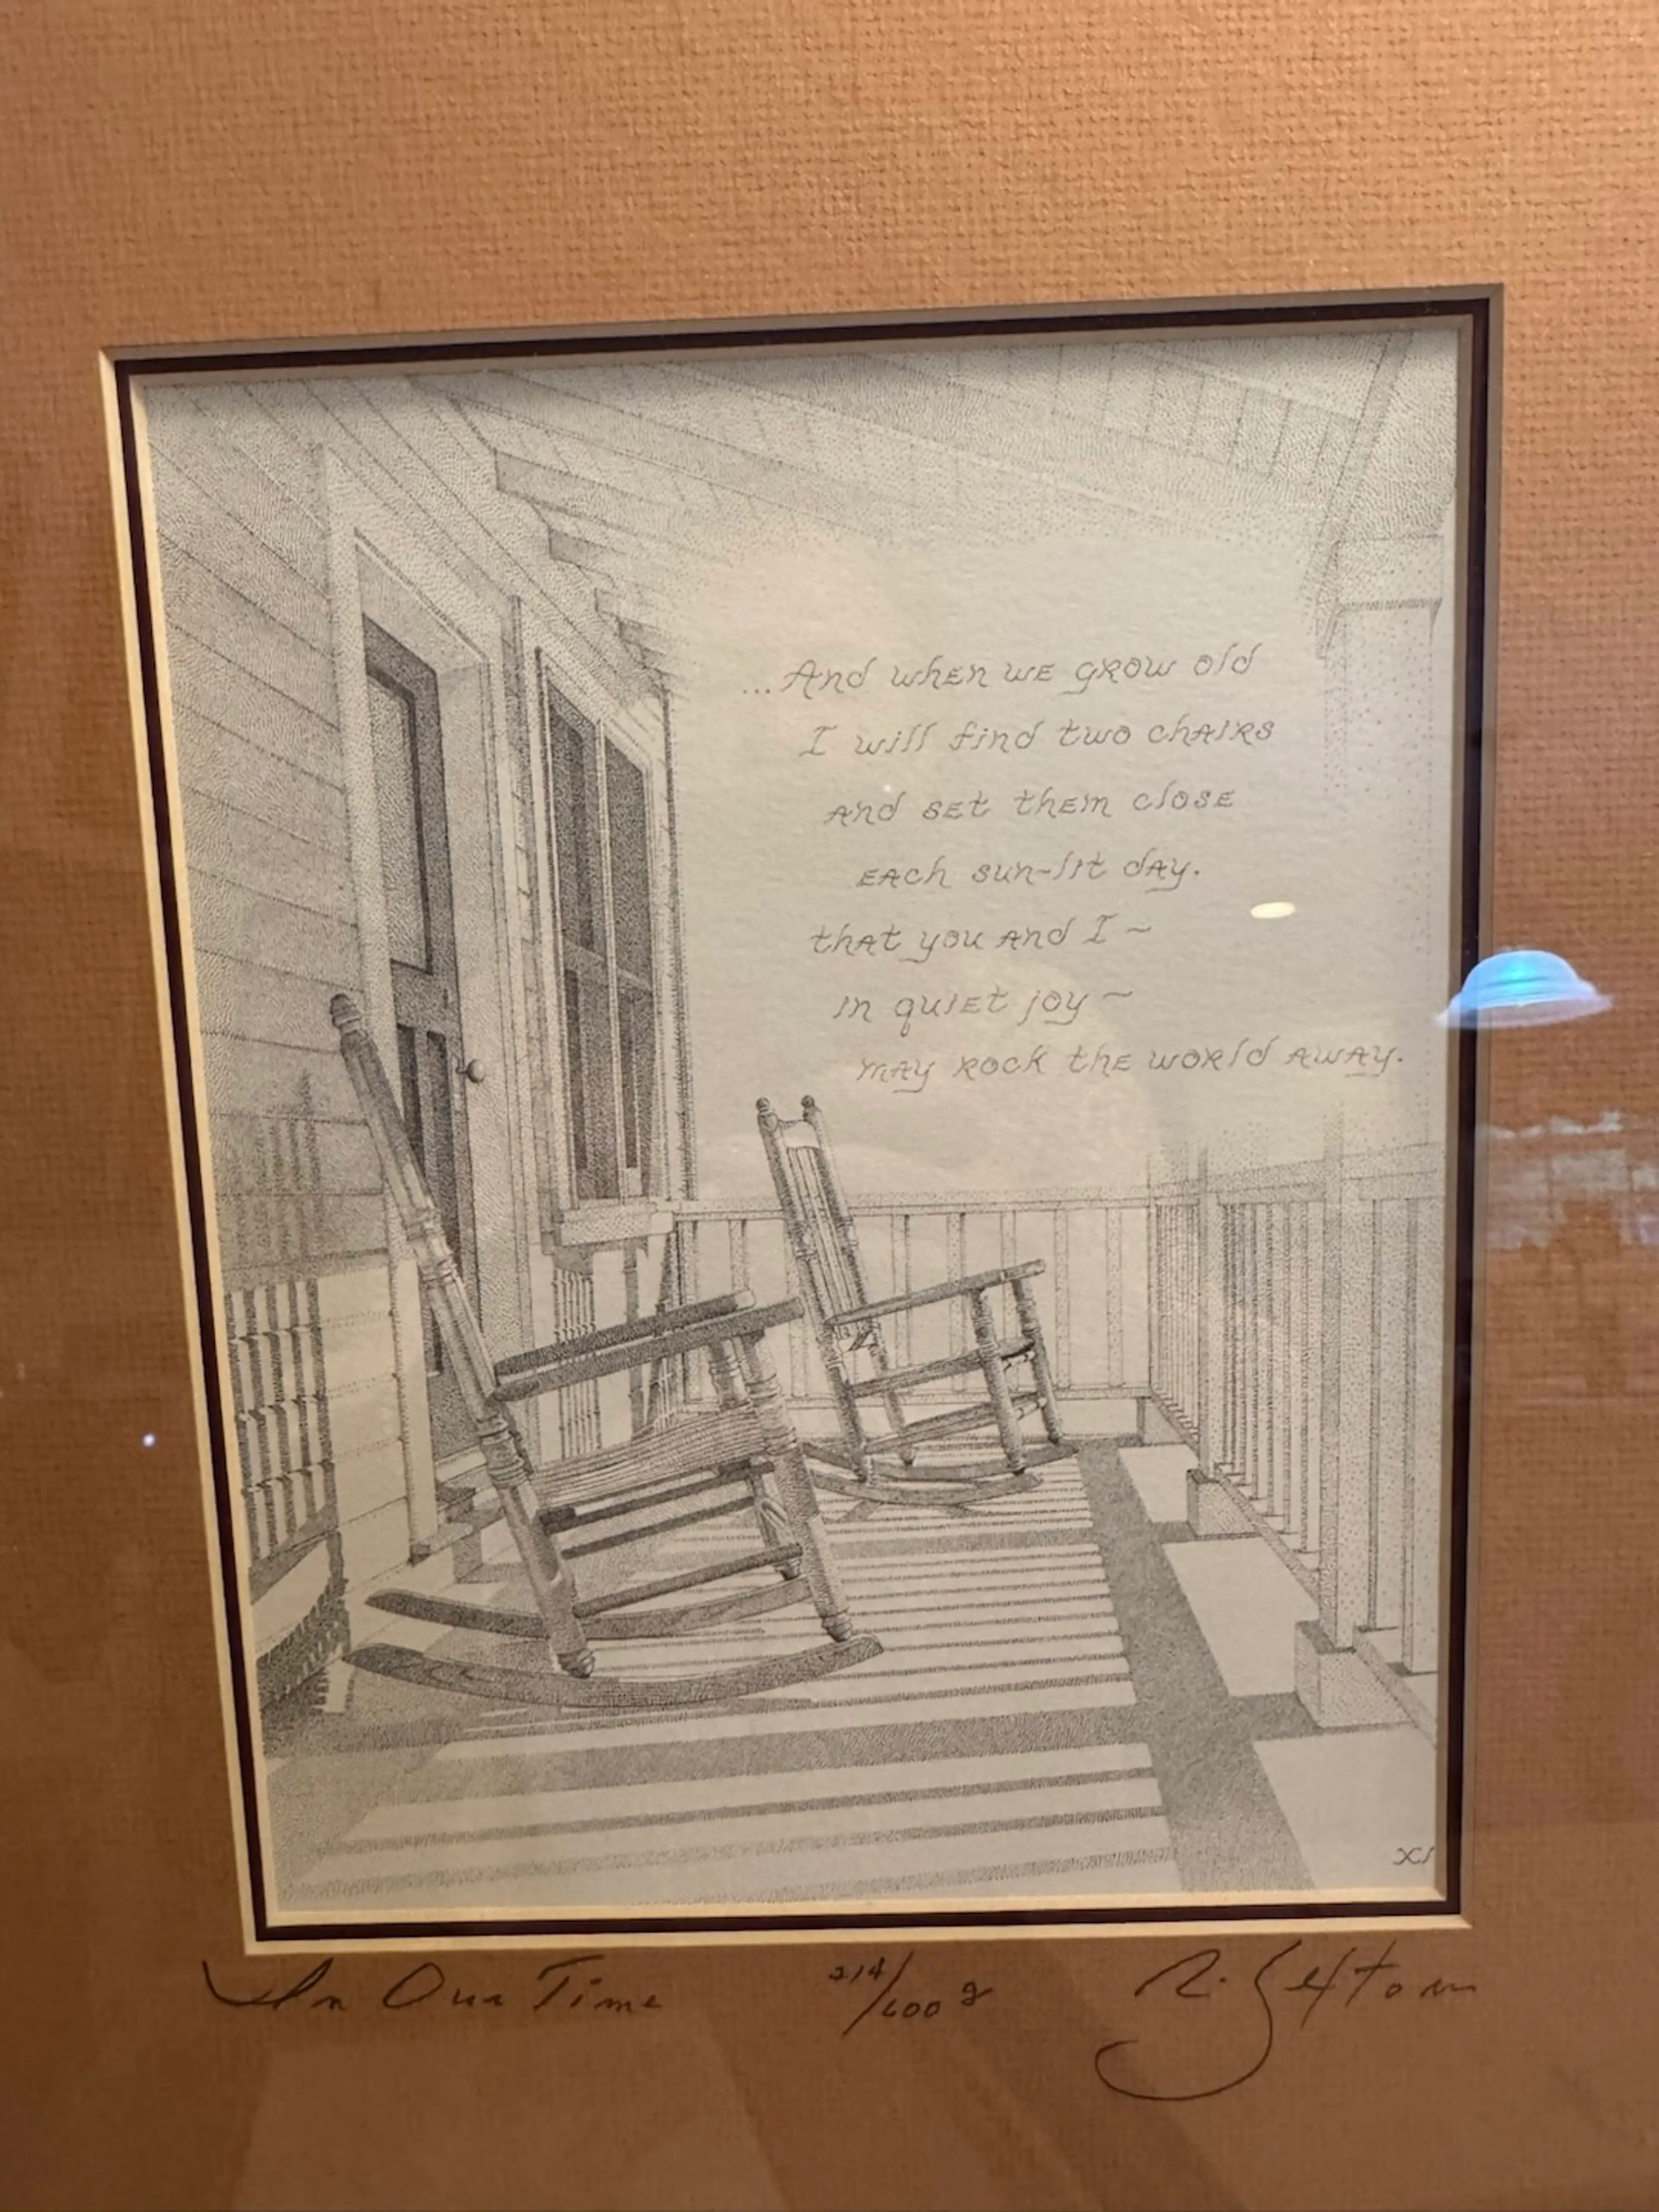 ...And when we grow old
I will find two chairs
and set them close
each sun-lit day.
that you and I ~
in quiet joy ~
may rock the world away.
In Our Time 214/600 R. Sexton